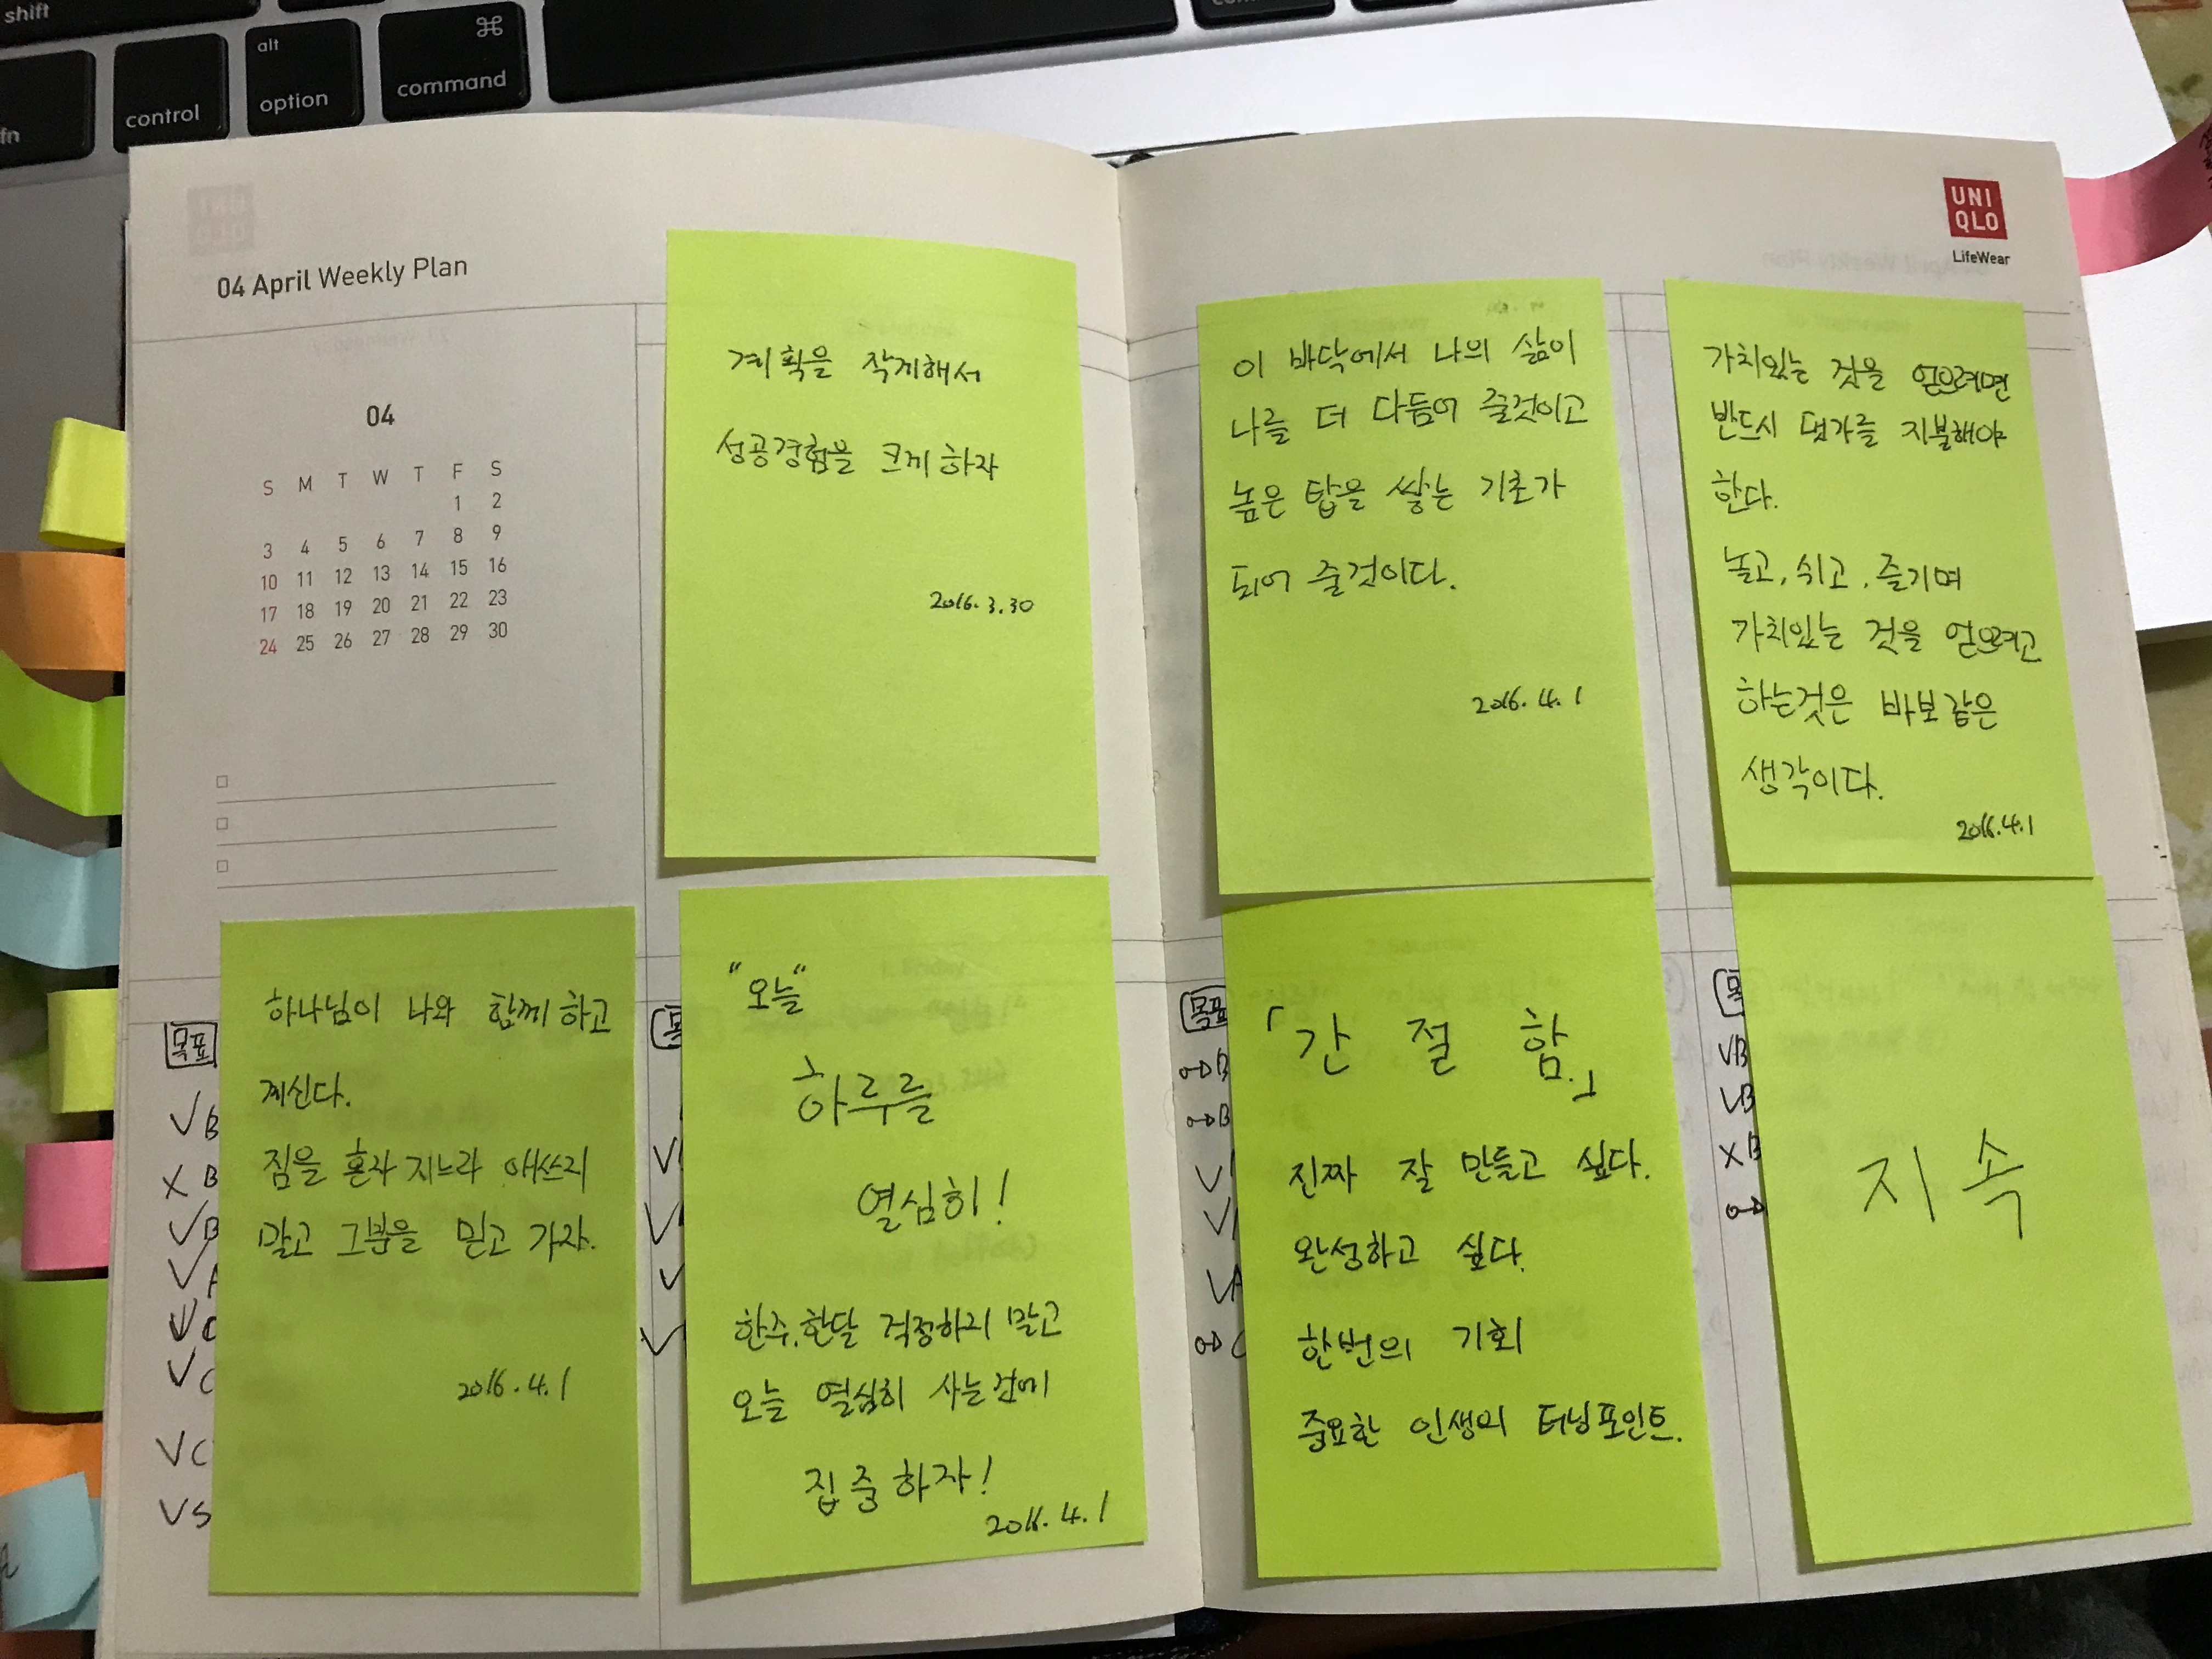 shift
fn
control
alt
option
⌘
command
04 April Weekly Plan
04
S M T W T F S
1 2
3 4 5 6 7 8 9
10 11 12 13 14 15 16
17 18 19 20 21 22 23
24 25 26 27 28 29 30
계획을 작게해서
성공경험을 크게 하자
2016.3.30
하나님이 나와 함께 하고
계신다.
짐을 혼자 지느라 애쓰지
말고 그분을 믿고 가자.
2016.4.1
"오늘"
하루를
열심히!
한주,한달 걱정하지 말고
오늘 열심히 사는것에
집중하자!
2016.4.1
목표
VB
XB
VB
VA
VC
VC
VC
VS
UNI
QLO
LifeWear
이 바닥에서 나의 삶이
나를 더 다듬어 줄것이고
높은 탑을 쌓는 기초가
되어 줄것이다.
2016.4.1
가치있는 것을 얻으려면
반드시 댓가를 지불해야
한다.
놀고,쉬고,즐기며
가치있는 것을 얻으려고
하는것은 바보같은
생각이다.
2016.4.1
목표
「간 절 함.」
진짜 잘 만들고 싶다.
완성하고 싶다.
한번의 기회
중요한 인생의 터닝포인트.
VB
VB
XB
지속